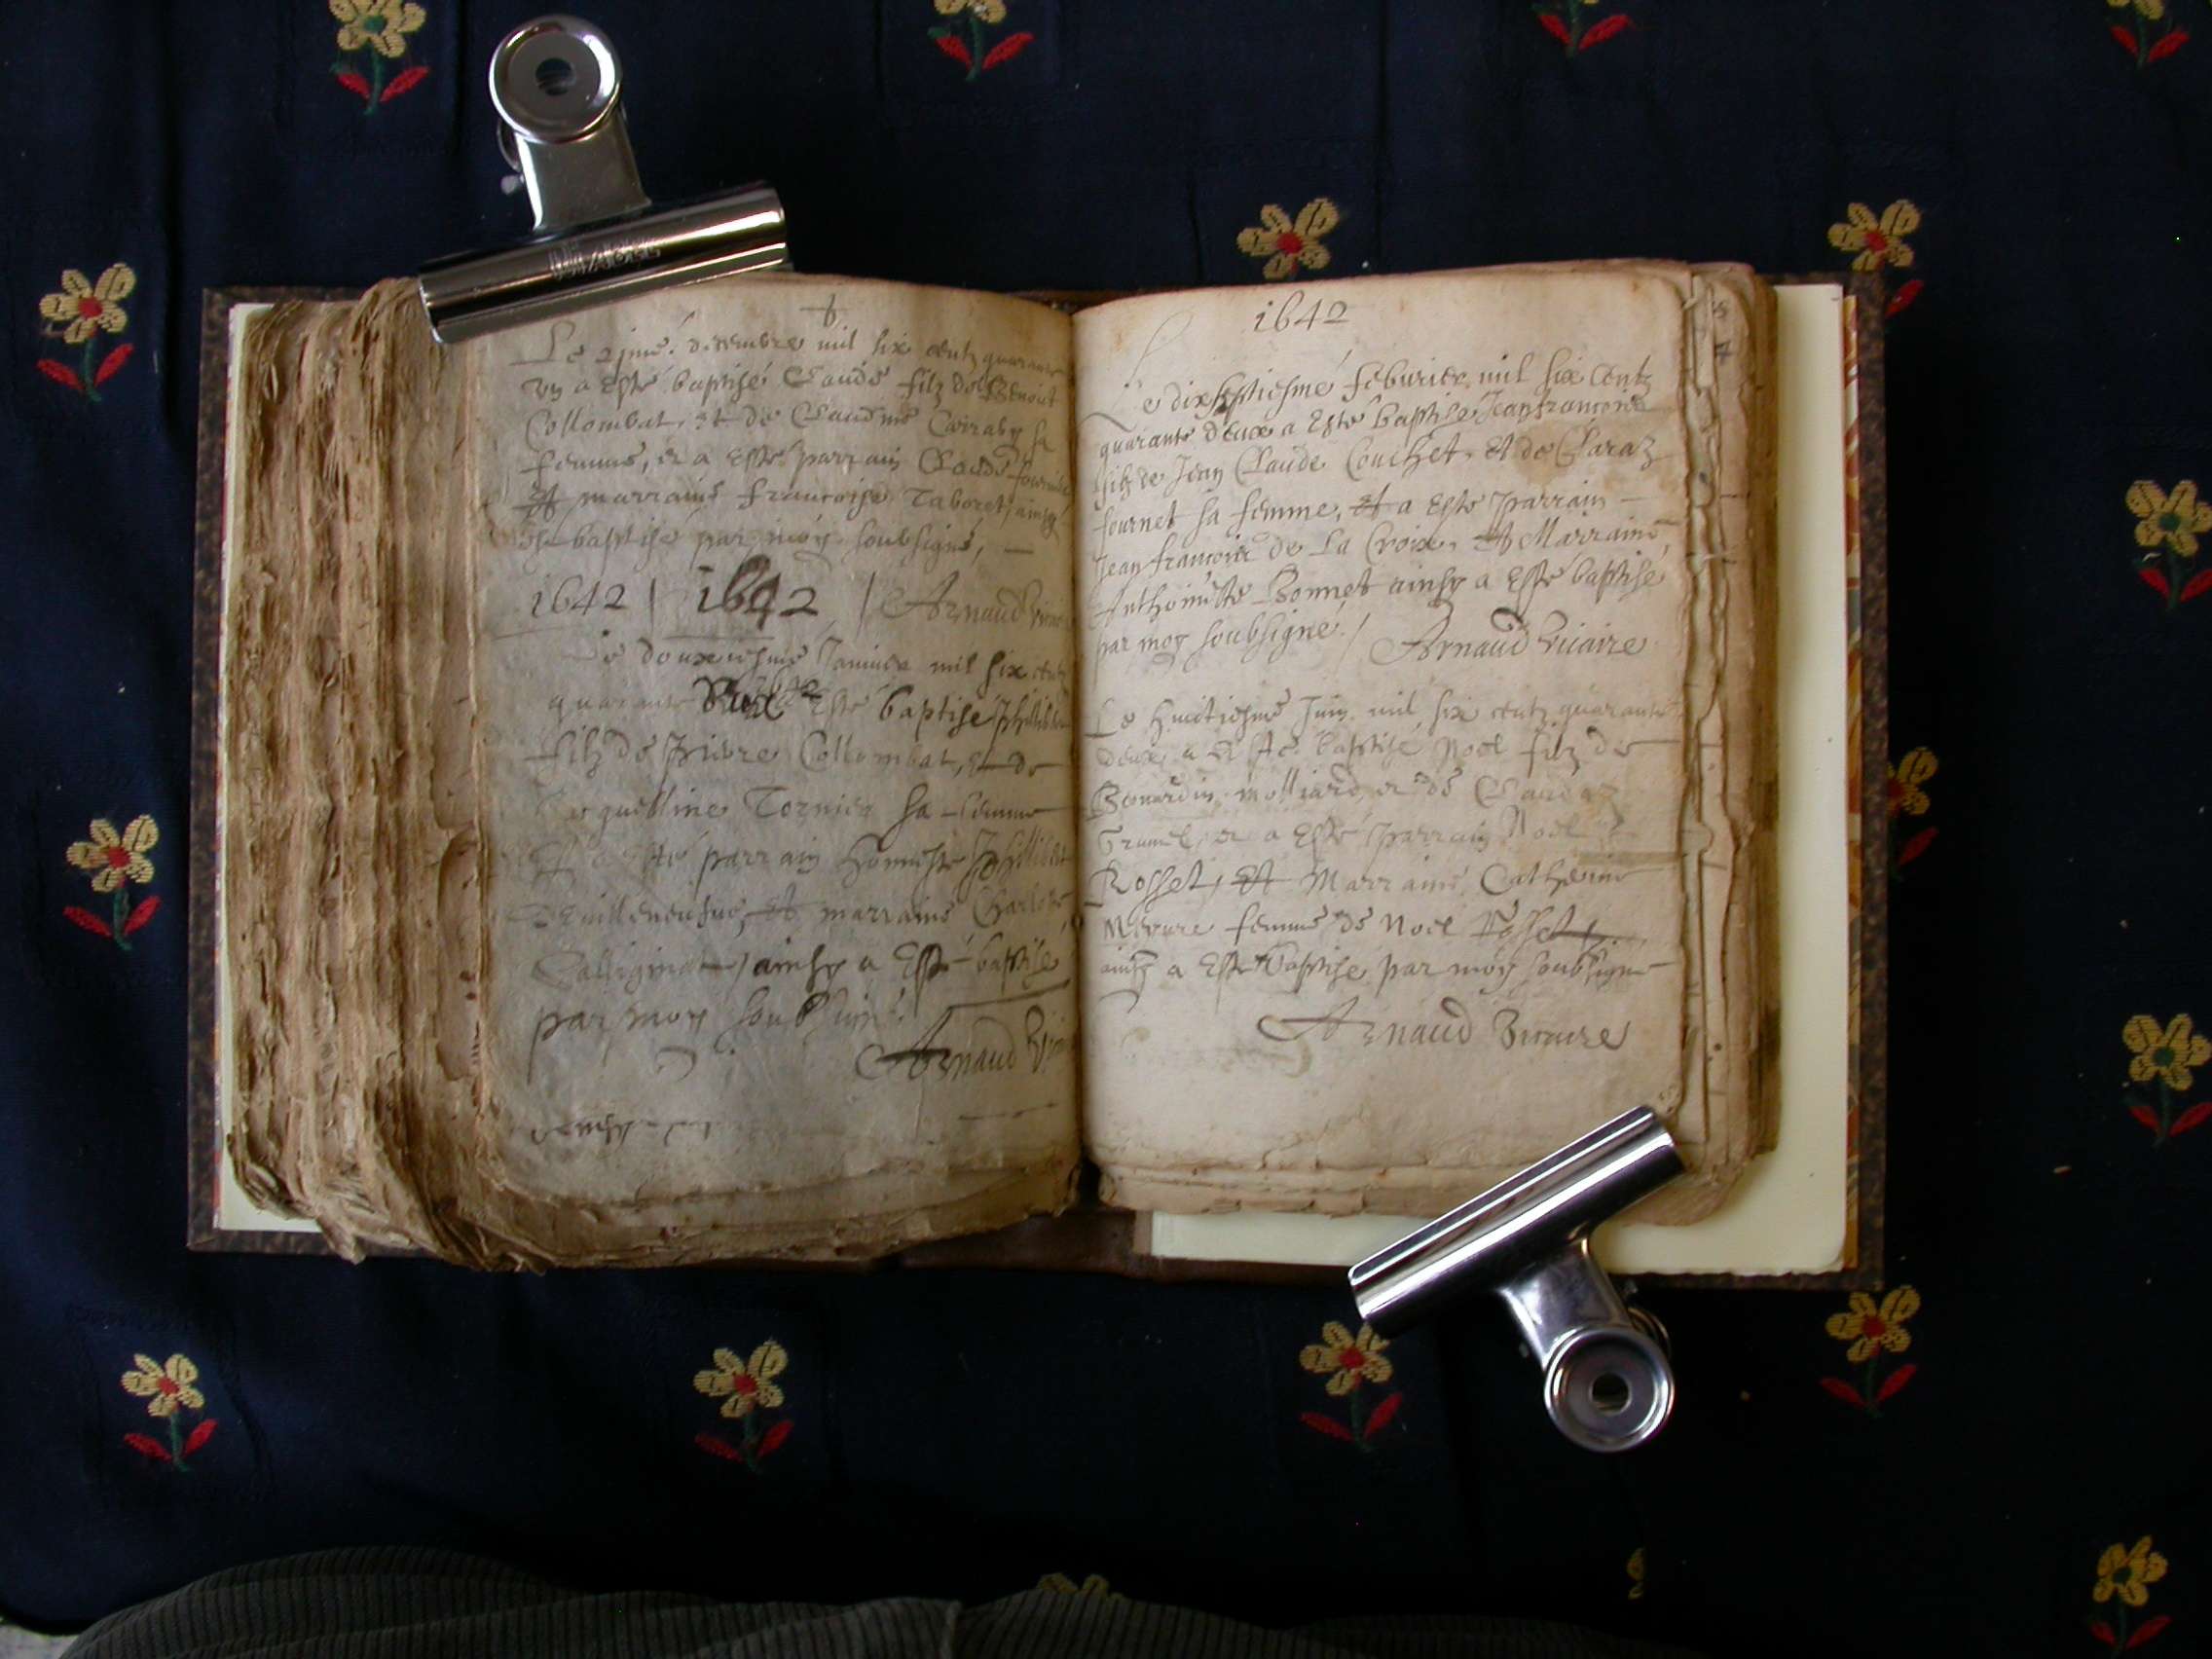 Le 2jme. decembre mil six centz quarante
vn a esté baptisé Claude filz de Benoict
Collombat, et de Claudine Cairaby sa
femme, et a esté parrain Claude
Et marraine francoise Taboret, ainsy
baptisé par moy soubsigné,
1642 | 1642 / Arnaud
Le douxiesme Januier mil six centz
quarante a esté baptisé
filz de pierre Collombat, et de
Jacquelline Tornier sa femme
Et a esté parrain honneste
et marraine Charlote
ainsy a esté baptisé
par moy soubsigné
Arnaud
1642
Le dixseptiesme feburier mil six centz
quarante deux a esté baptisé Jeanfrancois
filz de Jean Claude Couchet, et de Claraz
fournet sa femme, Et a esté parrain
Jean francois de La Croix, Et Marraine
Anthoinette Bonnet ainsy a esté baptisé
par moy soubsigné / Arnaud vicaire
Le huictiesme Juin mil six centz quarante
deux a esté baptisé Noel filz de
Bernardin molliard, et de Claudaz
Grumel, et a esté parrain Noel
Rosset, Et Marraine Catherine
femme de Noel Rosset,
ainsy a esté baptisé par moy soubsigné
Arnaud Vicaire